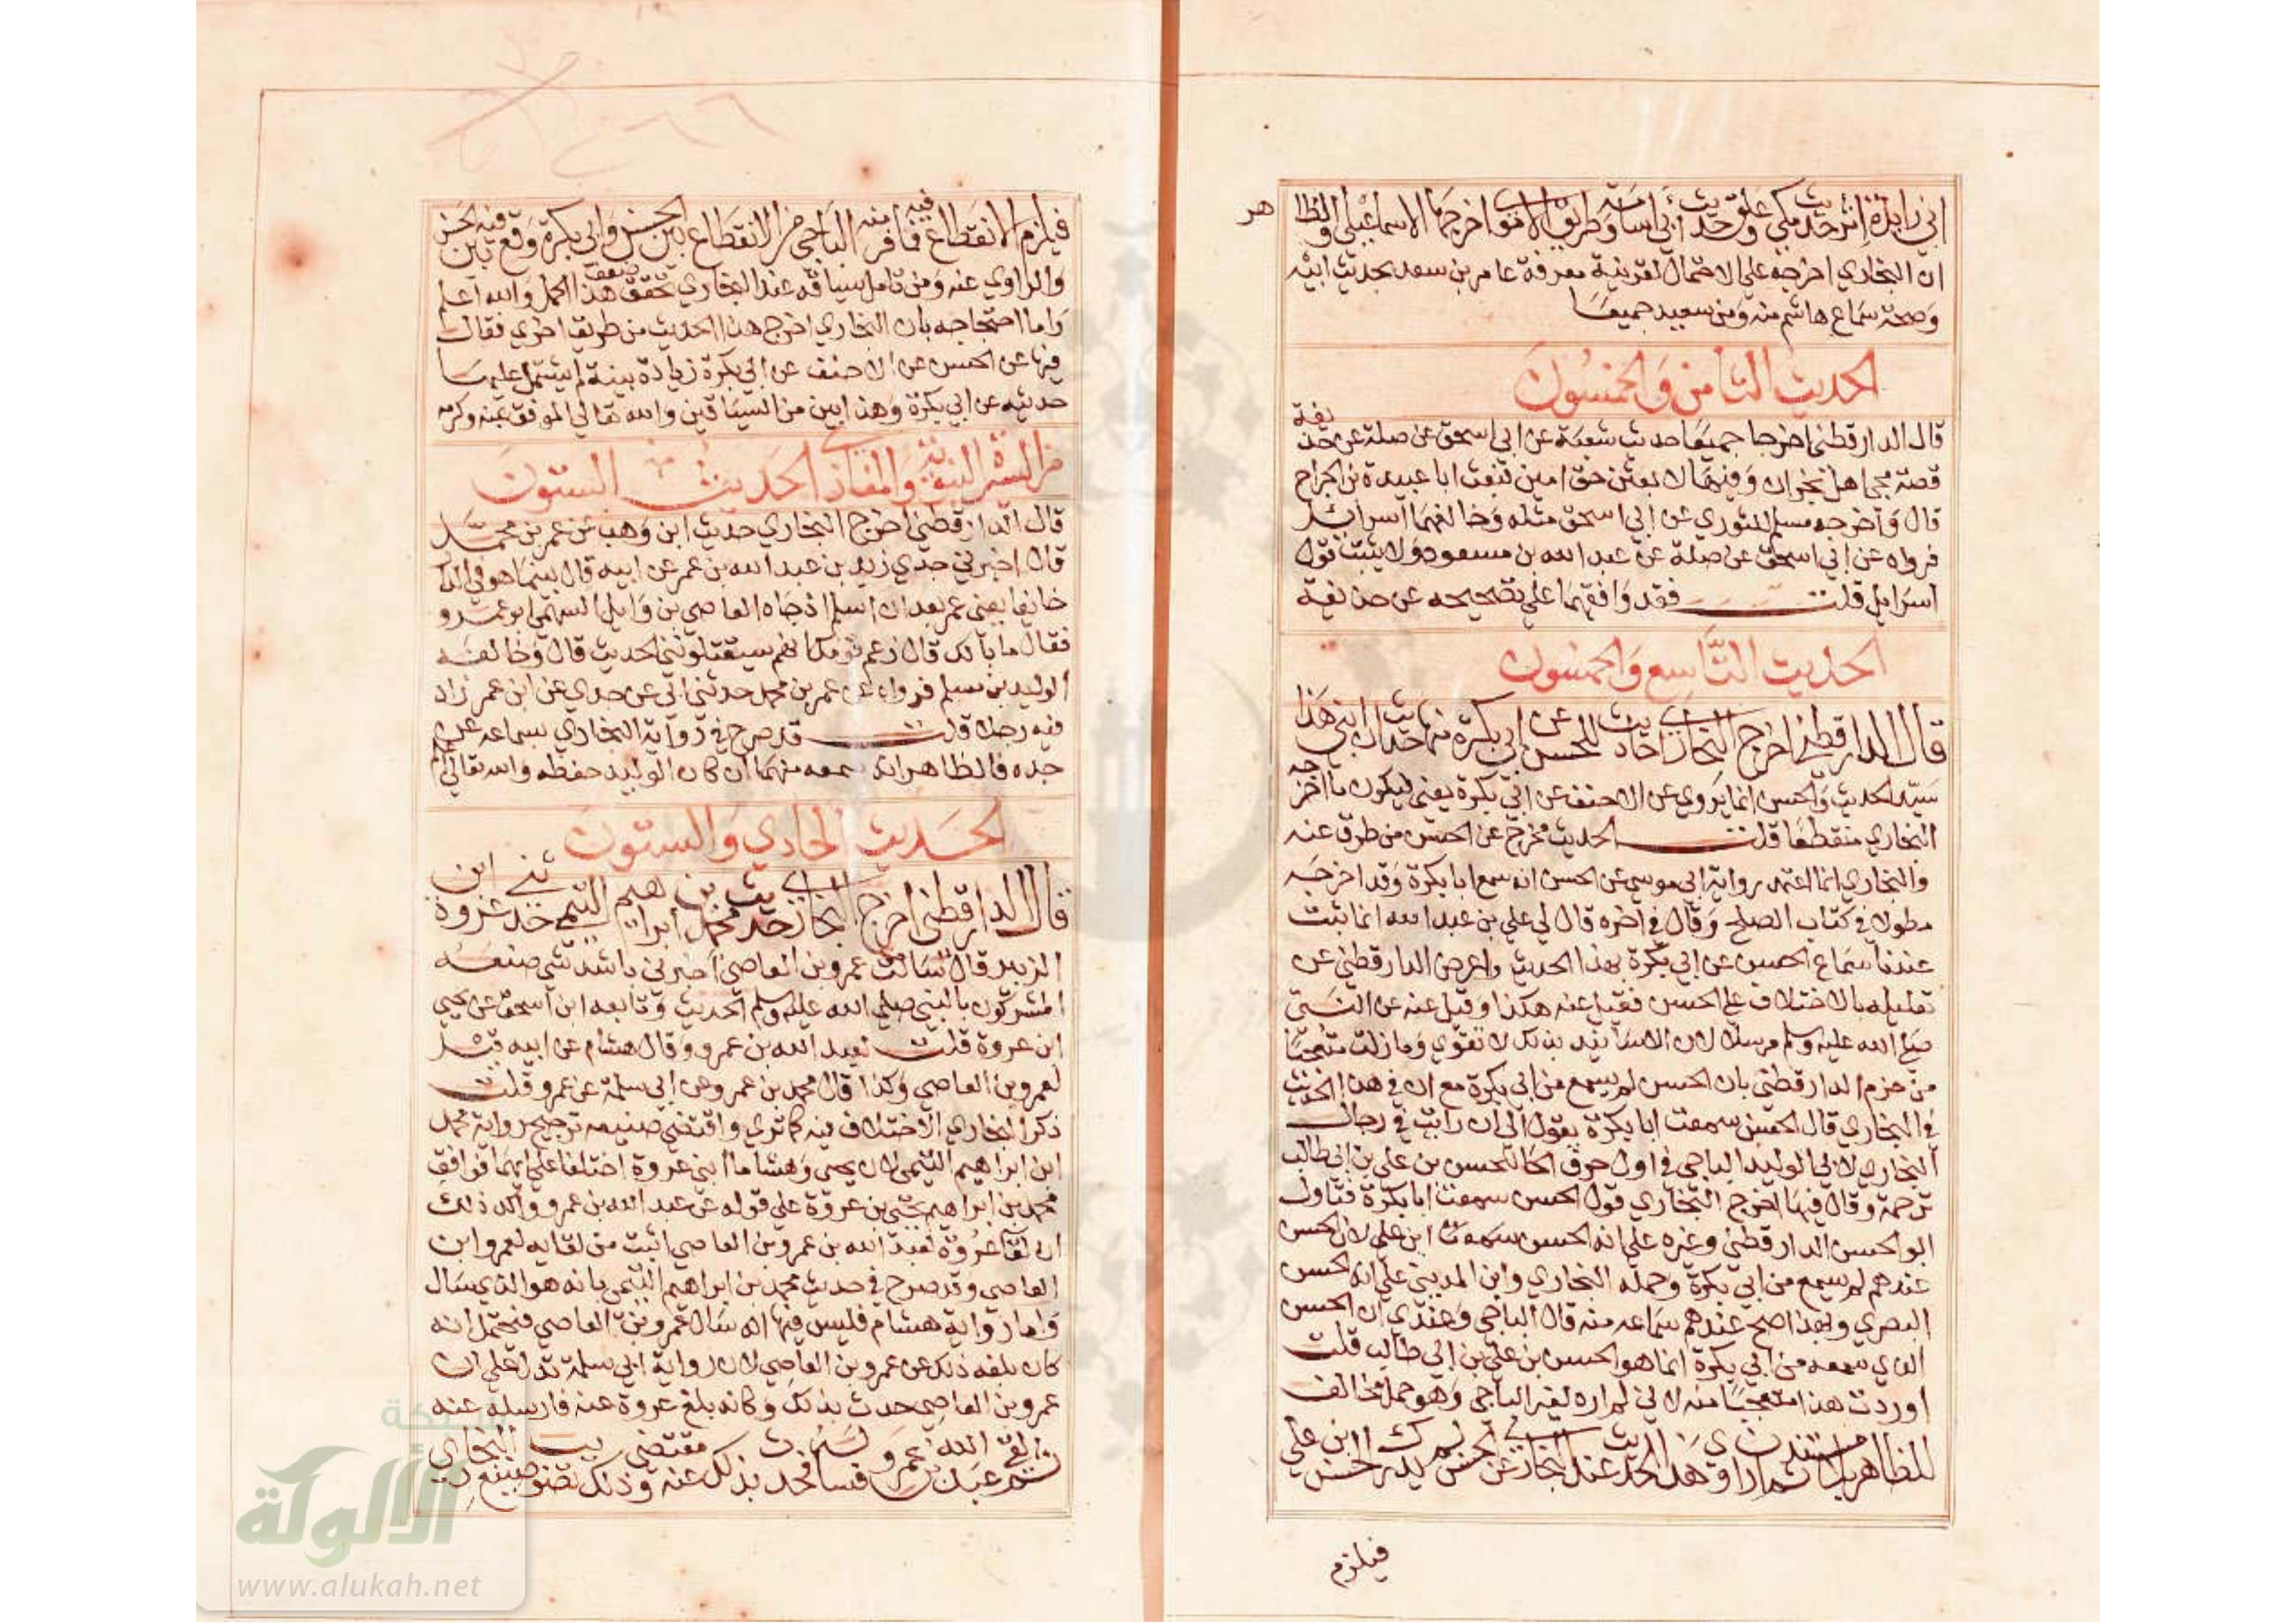 ابن ابي زايدة اثر حديث مكي وعلق حديث ابي اسامة وطريق الاموي اخرجها الاسماعيلي والظا
هر
ان البخاري اخرجه علي الاحتمال لقرينة معرفة عامر بن سعد بحديث ابيه
وصحة سماع هاشم منه ومن سعيد جميعا
الحديث الثامن والخمسون
قال الدارقطني اخرجا جميعا حديث شعبة عن ابي اسحق عن صلة عن حذيفة
قصة مجي اهل نجران وفيها لابعثن حق امين فبعث ابا عبيدة بن الجراح
قال واخرجه مسلم للثوري عن ابي اسحق مثله وخالفهما اسرائيل
فرواه عن ابي اسحق عن صلة عن عبد الله بن مسعود ولا يثبت قول
اسرايل قلت فقد وافقهما علي تصحيحه عن حذيفة
الحديث التاسع والخمسون
قال الدارقطني اخرج البخاري احاديث للحسن عن ابي بكرة منها حديث ان ابني هذا
سيد الحديث والحسن انما يروي عن الاحنف عن ابي بكرة يعني ليكون ما اخرجه
البخاري منقطعا قلت الحديث مخرج عن الحسن من طرق عنه
والبخاري انما اعتمد رواية ابي موسي عن الحسن انه سمع ابا بكرة وقد اخرجه
مطولا في كتاب الصلح وقال في اخره قال لي علي بن عبد الله انما ثبت
عندنا سماع الحسن عن ابي بكرة بهذا الحديث واعرض الدارقطني عن
تعليله بالاختلاف علي الحسن فقيل عنه هكذا وقيل عنه عن النبي
صلي الله عليه وسلم مرسلا لان الاسانيد بذلك لا تقوي وما زلت متعجبا
من جزم الدارقطني بان الحسن لم يسمع من ابي بكرة مع ان في هذا الحديث
في البخاري قال الحسن سمعت ابا بكرة يقول الي ان رايت في رجال
البخاري لابي الوليد الباجي في اول حرف الحا للحسن بن علي بن ابي طالب
ترجمة وقال فيها اخرج البخاري قول الحسن سمعت ابا بكرة فتاول
ابو الحسن الدارقطني وغيره علي انه الحسن سمعت ابن علي لان الحسن
عندهم لم يسمع من ابي بكرة وحمله البخاري وابن المديني علي انه الحسن
البصري وبهذا صح عندهم سماعه منه قال الباجي وعندي ان الحسن
الذي سمعه من ابي بكرة انما هو الحسن بن علي بن ابي طالب قلت
اوردت هذا متعجبا منه لاني لم اره لغير الباجي وهو حمل مخالف
للظاهر بلا مستند ثم ان راوي هذا الحديث عند البخاري عن الحسن لم يدرك الحسن ابن علي
فيلزم
فيلزم الانقطاع فيه فما فر منه الباجي من الانقطاع بين الحسن وابي بكرة وقع فيه بين الحسن
والراوي عنه ومن تامل سياقه عند البخاري تحقق ضعف هذا الحمل والله اعلم
واما احتجاجه بان البخاري اخرج هذا الحديث من طريق اخري فقال
فيها عن الحسن عن الاحنف عن ابي بكرة زيادة بينة لم يشتمل عليها
حديثه عن ابي بكرة وهذا بين من السياقين والله تعالي الموفق بمنه وكرمه
من السيرة النبوية والمغازي الحديث الستون
قال الدارقطني اخرج البخاري حديث ابن وهب عن عمر بن محمد
قال اخبرني جدي زيد بن عبد الله بن عمر عن ابيه قال بينما هو في الدار
خايفا يعني عمر بعد ان اسلم اذ جاه العاصي بن وايل السهمي ابو عمرو
فقال ما بالك قال زعم قومك انهم سيقتلونني الحديث قال وخالفه
الوليد بن مسلم فرواه عن عمر بن محمد حدثني ابي عن جدي عن ابن عمر زاد
فيه رجلا قلت قد صرح في رواية البخاري بسماعه عن
جده فالظاهر انه سمعه منهما ان كان الوليد حفظه والله تعالي اعلم
الحديث الحادي والستون
قال الدارقطني اخرج البخاري حديث محمد بن ابراهيم التيمي حدثني عروة ابن
الزبير قال سالت عمرو بن العاصي اخبرني باشد شي صنعه
المشركون بالنبي صلي الله عليه وسلم الحديث وتابعه ابن اسحق عن يحيي
ابن عروة قلت لعبد الله بن عمرو وقال هشام عن ابيه قيل
لعمرو بن العاصي وكذا قال محمد بن عمرو عن ابي سلمة عن عمرو قلت
ذكر البخاري الاختلاف فيه كما تري واقتضي صنيعه ترجيح رواية محمد
ابن ابراهيم التيمي لان يحيي وهشاما ابني عروة اختلفا علي ابيهما فوافق
محمد بن ابراهيم يحيي بن عروة علي قوله عن عبد الله بن عمرو واكد ذلك
ان لقا عروة لعبد الله بن عمرو بن العاصي اثبت من لقايه لعمرو ابن
العاصي وقد صرح في حديث محمد بن ابراهيم التيمي بانه هو الذي سال
واما رواية هشام فليس فيها انه سال عمرو بن العاصي فيحتمل انه
كان بلغه ذلك عن عمرو بن العاصي لان رواية ابي سلمة تدل علي ان
عمرو بن العاصي حدث بذلك وكانه بلغ عروة عنه فارسله عنه
ثم لقي عبد الله بن عمرو فساله فحدثه بذلك عنه وذلك مقتضي صنيع البخاري
شبكة
الألوكة
www.alukah.net